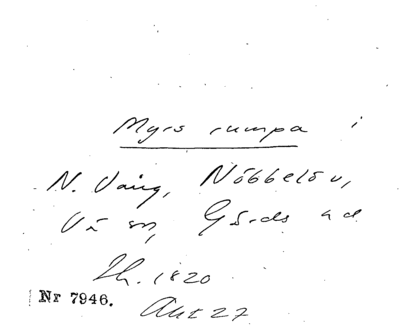 Myrs rumpa i
N. Vång, Nöbbelöv,
Vä sn, Gärds hd
Lh. 1820
Nr 7946.
Akt 27